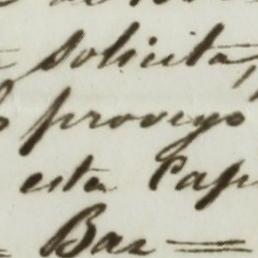 solicita,
proveyo
esta Cap
Bar =